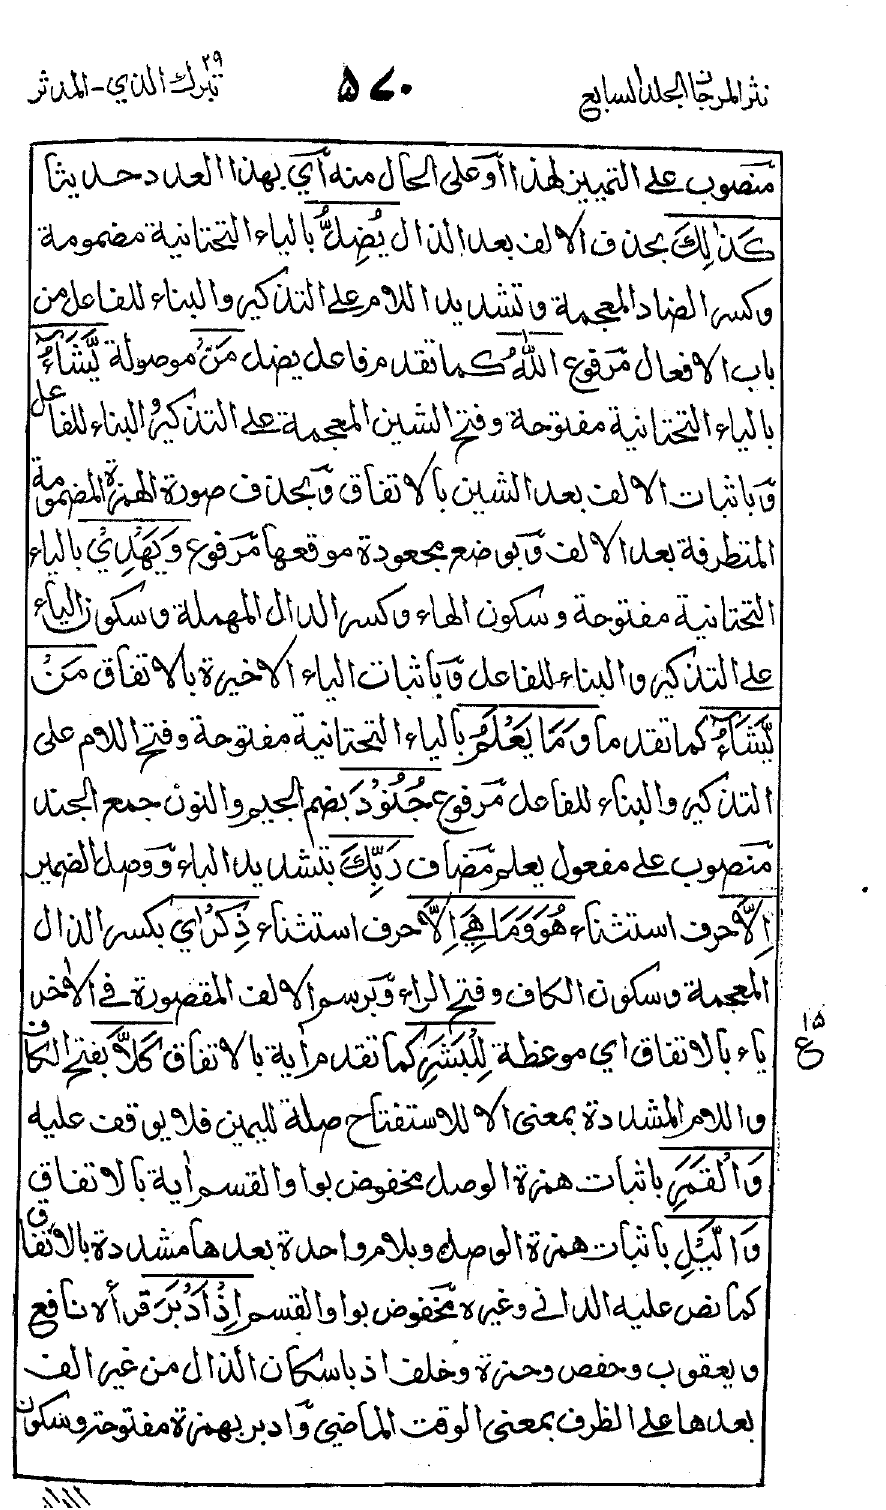 نثر المرجان المجلد السابع
٥٧٠
تبرك الذي - المدثر ٢٩
منصوب على التمييز لهذا أو على الحال منه أي بهذا العدد حديثا
كَذٰلِكَ بحذف الالف بعد الذال يُضِلُّ بالياء التحتانية مضمومة
وكسر الضاد المعجمة وتشديد اللام على التذكير والبناء للفاعل من
باب الافعال مرفوع اللّٰهُ كما تقدم فاعل يضل مَنْ موصولة يَّشَآءُ
بالياء التحتانية مفتوحة وفتح الشين المعجمة على التذكير والبناء للفاعل
وباثبات الالف بعد الشين بالاتفاق وبحذف صورة الهمزة المضمومة
المتطرفة بعد الالف وبوضع مجعودة موقعها مرفوع وَيَهْدِيْ بالياء
التحتانية مفتوحة وسكون الهاء وكسر الدال المهملة وسكون الياء
على التذكير والبناء للفاعل وباثبات الياء الاخيرة بالاتفاق مَنْ
يَّشَآءُ كما تقدما وَمَا يَعْلَمُ بالياء التحتانية مفتوحة وفتح اللام على
التذكير والبناء للفاعل مرفوع جُنُوْدَ بضم الجيم والنون جمع الجند
منصوب على مفعول يعلم مضاف رَبِّكَ بتشديد الباء ووصل الضمير
اِلَّا حرف استثناء هُوَ وَمَا هِيَ اِلَّا حرف استثناء ذِكْرٰي بكسر الذال
المعجمة وسكون الكاف وفتح الراء وبرسم الالف المقصورة في الاخر
ياء بالاتفاق اي موعظة لِلْبَشَرِ كما تقدم أية بالاتفاق كَلَّا بفتح الكاف
واللام المشددة بمعنى الا للاستفتاح صلة لليمين فلا يوقف عليه
وَالْقَمَرِ باثبات همزة الوصل مخفوض بواو القسم أية بالاتفاق
وَالَّيْلِ باثبات همزة الوصل وبلام واحدة بعدها مشددة بالاتفاق
كما نص عليه الداني وغيره مخفوض بواو القسم اِذْ اَدْبَرَ قرأه نافع
ويعقوب وحفص وحمزة وخلف اذ باسكان الذال من غير الف
بعدها على الظرف بمعنى الوقت الماضي وادبر بهمزة مفتوحة وسكون
١٥
ع